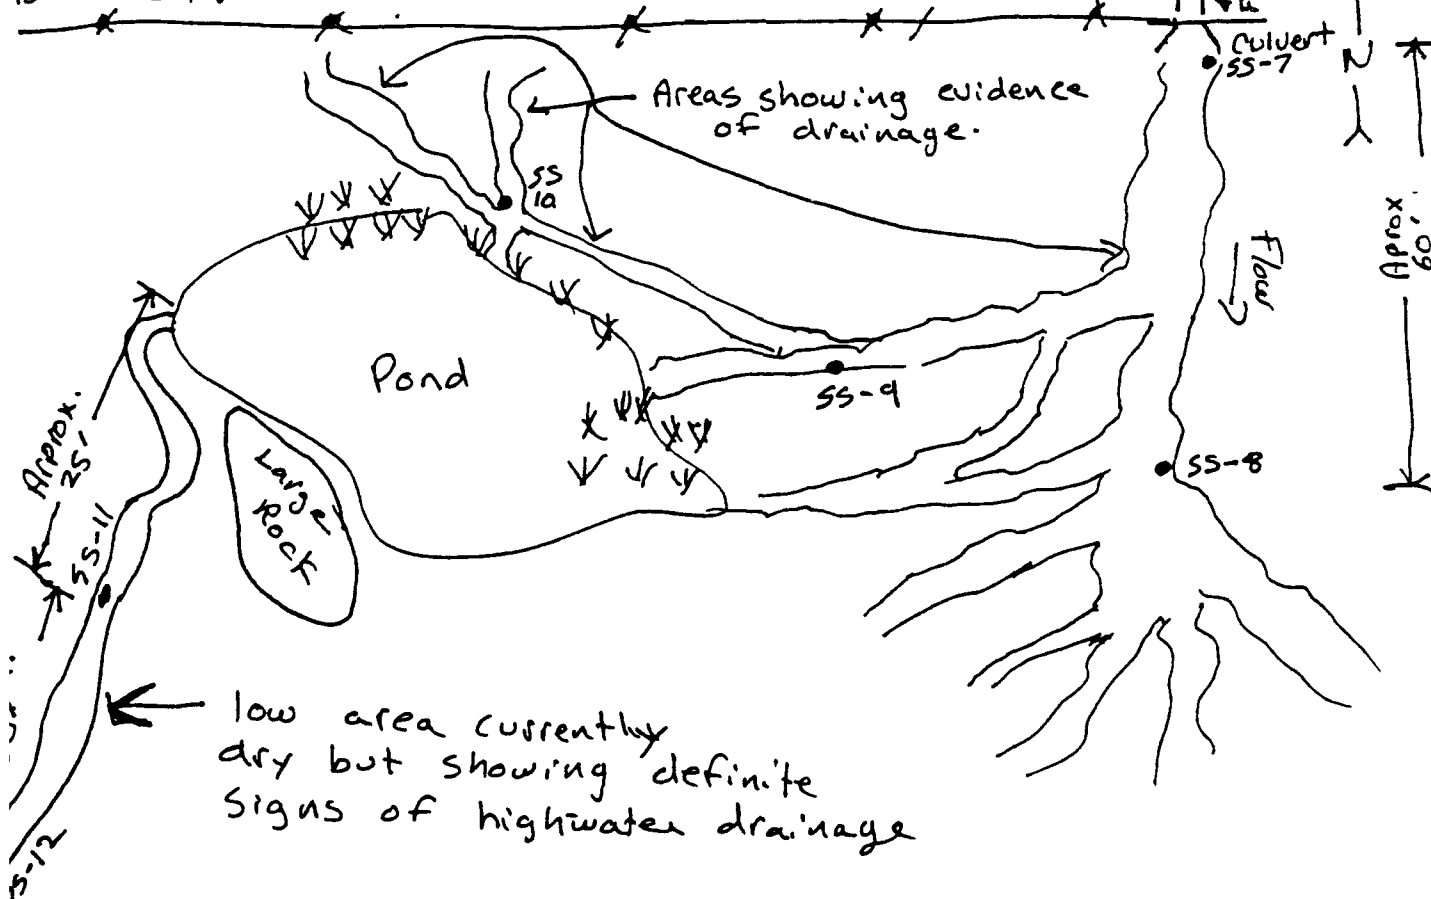 Culvert
SS-7
N
Areas showing evidence
of drainage.
SS
10
Flow
Aprox.
60'
Pond
SS-9
SS-8
Approx.
25'
SS-11
Large
Rock
low area currently
dry but showing definite
signs of highwater drainage
S-12